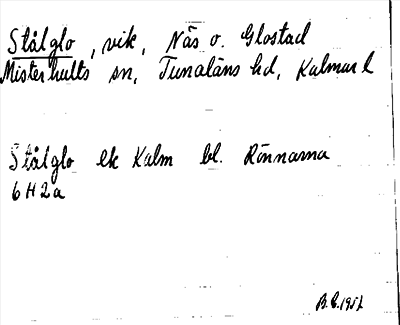 Stålglo, vik, Näs o. Glostad
Misterhults sn, Tunaläns hd, Kalmar l
Stålglo ek Kalm bl. Rönnarna
6 H 2 a